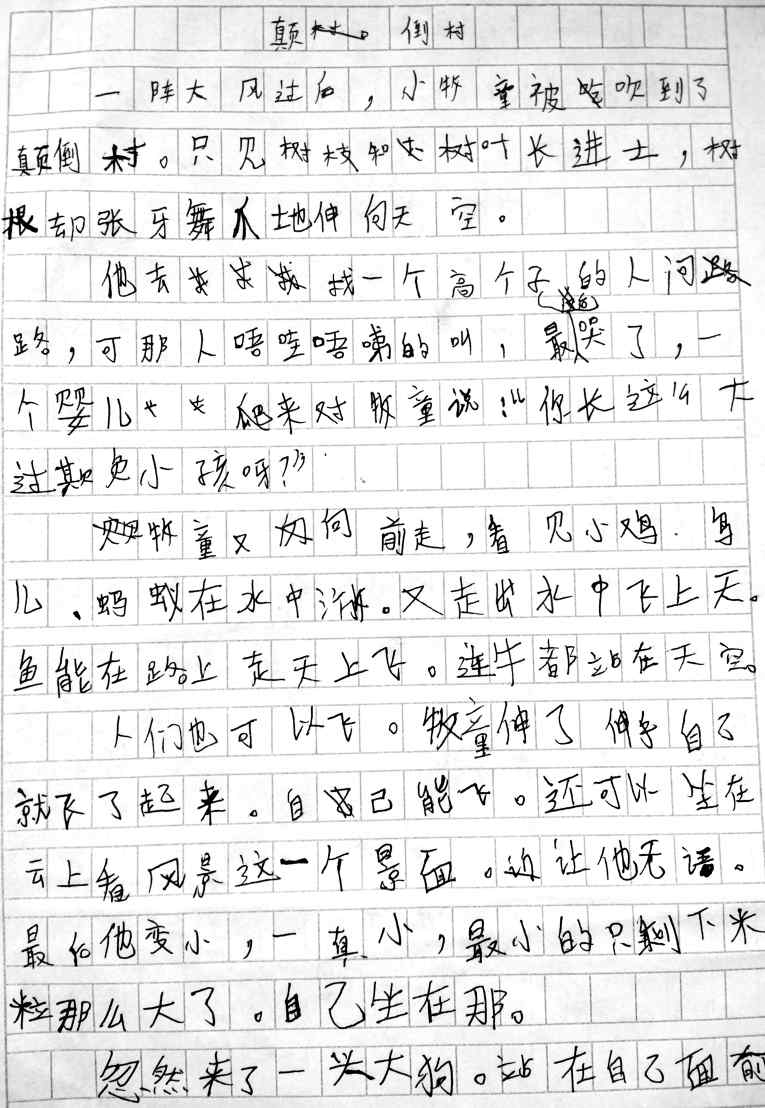 颠倒村
一阵大风过后，小牧童被吹到了
颠倒村。只见树枝和树叶长进土，树
根却张牙舞爪地伸向天空。
他去找一个高个子的人问
路，可那人唔哇唔嘀的叫，最哭了，一
个婴儿爬来对牧童说："你长这么大
过期负小孩呀？"
牧童又向前走，看见小鸡.鸟
儿、蚂蚁在水中游。又走出水中飞上天。
鱼能在路上走天上飞。连牛都站在天空。
人们也可以飞。牧童伸了伸手自己
就飞了起来。自己能飞。还可以坐在
云上看风景这一个景面。让他无语。
最后他变小，一真小，最小的只剩下米
粒那么大了。自己坐在那。
忽然来了一头大狗。站在自己面前